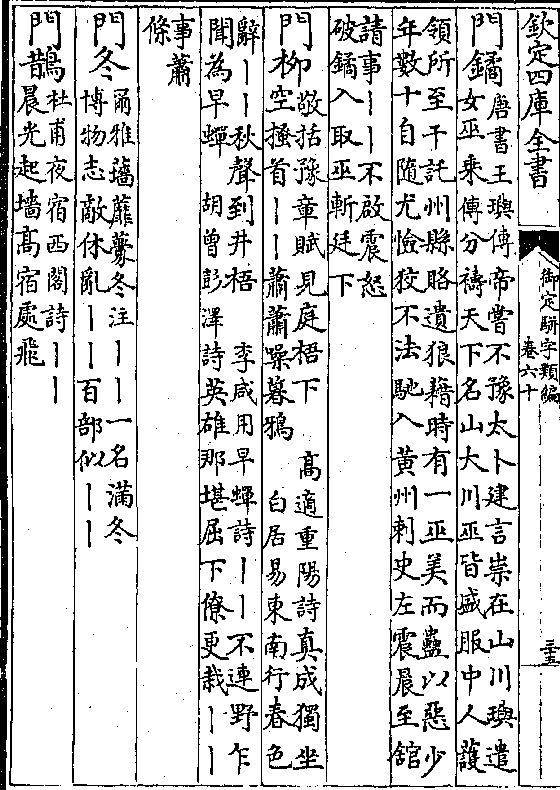 欽定四庫全書
御定駢字類編
卷六十
三十五
門鐍 唐書王璵傳帝嘗不豫太卜建言祟在山川璵遣
女巫乘傳分禱天下名山大川巫皆盛服中人護
領所至干託州縣賂遺狼藉時有一巫美而蠱以惡少
年數十自隨尤憸狡不法馳入黃州刺史左震晨至舘
請事丨丨不啟震怒
破鐍入取巫斬廷下
門柳 敬括豫章賦見庭梧下 高適重陽詩真成獨坐
空搔首丨丨蕭蕭噪暮鴉 白居易東南行春色
辭丨丨秋聲到井梧 李咸用早蟬詩丨丨不連野乍
聞為早蟬 胡曾彭澤詩英雄那堪屈下僚更栽丨丨
事蕭
條
門冬 爾雅蘠蘼虋冬注丨丨一名滿冬
博物志敵休亂丨丨百部似丨丨
門鵲 杜甫夜宿西閣詩丨丨
晨光起墻高宿處飛